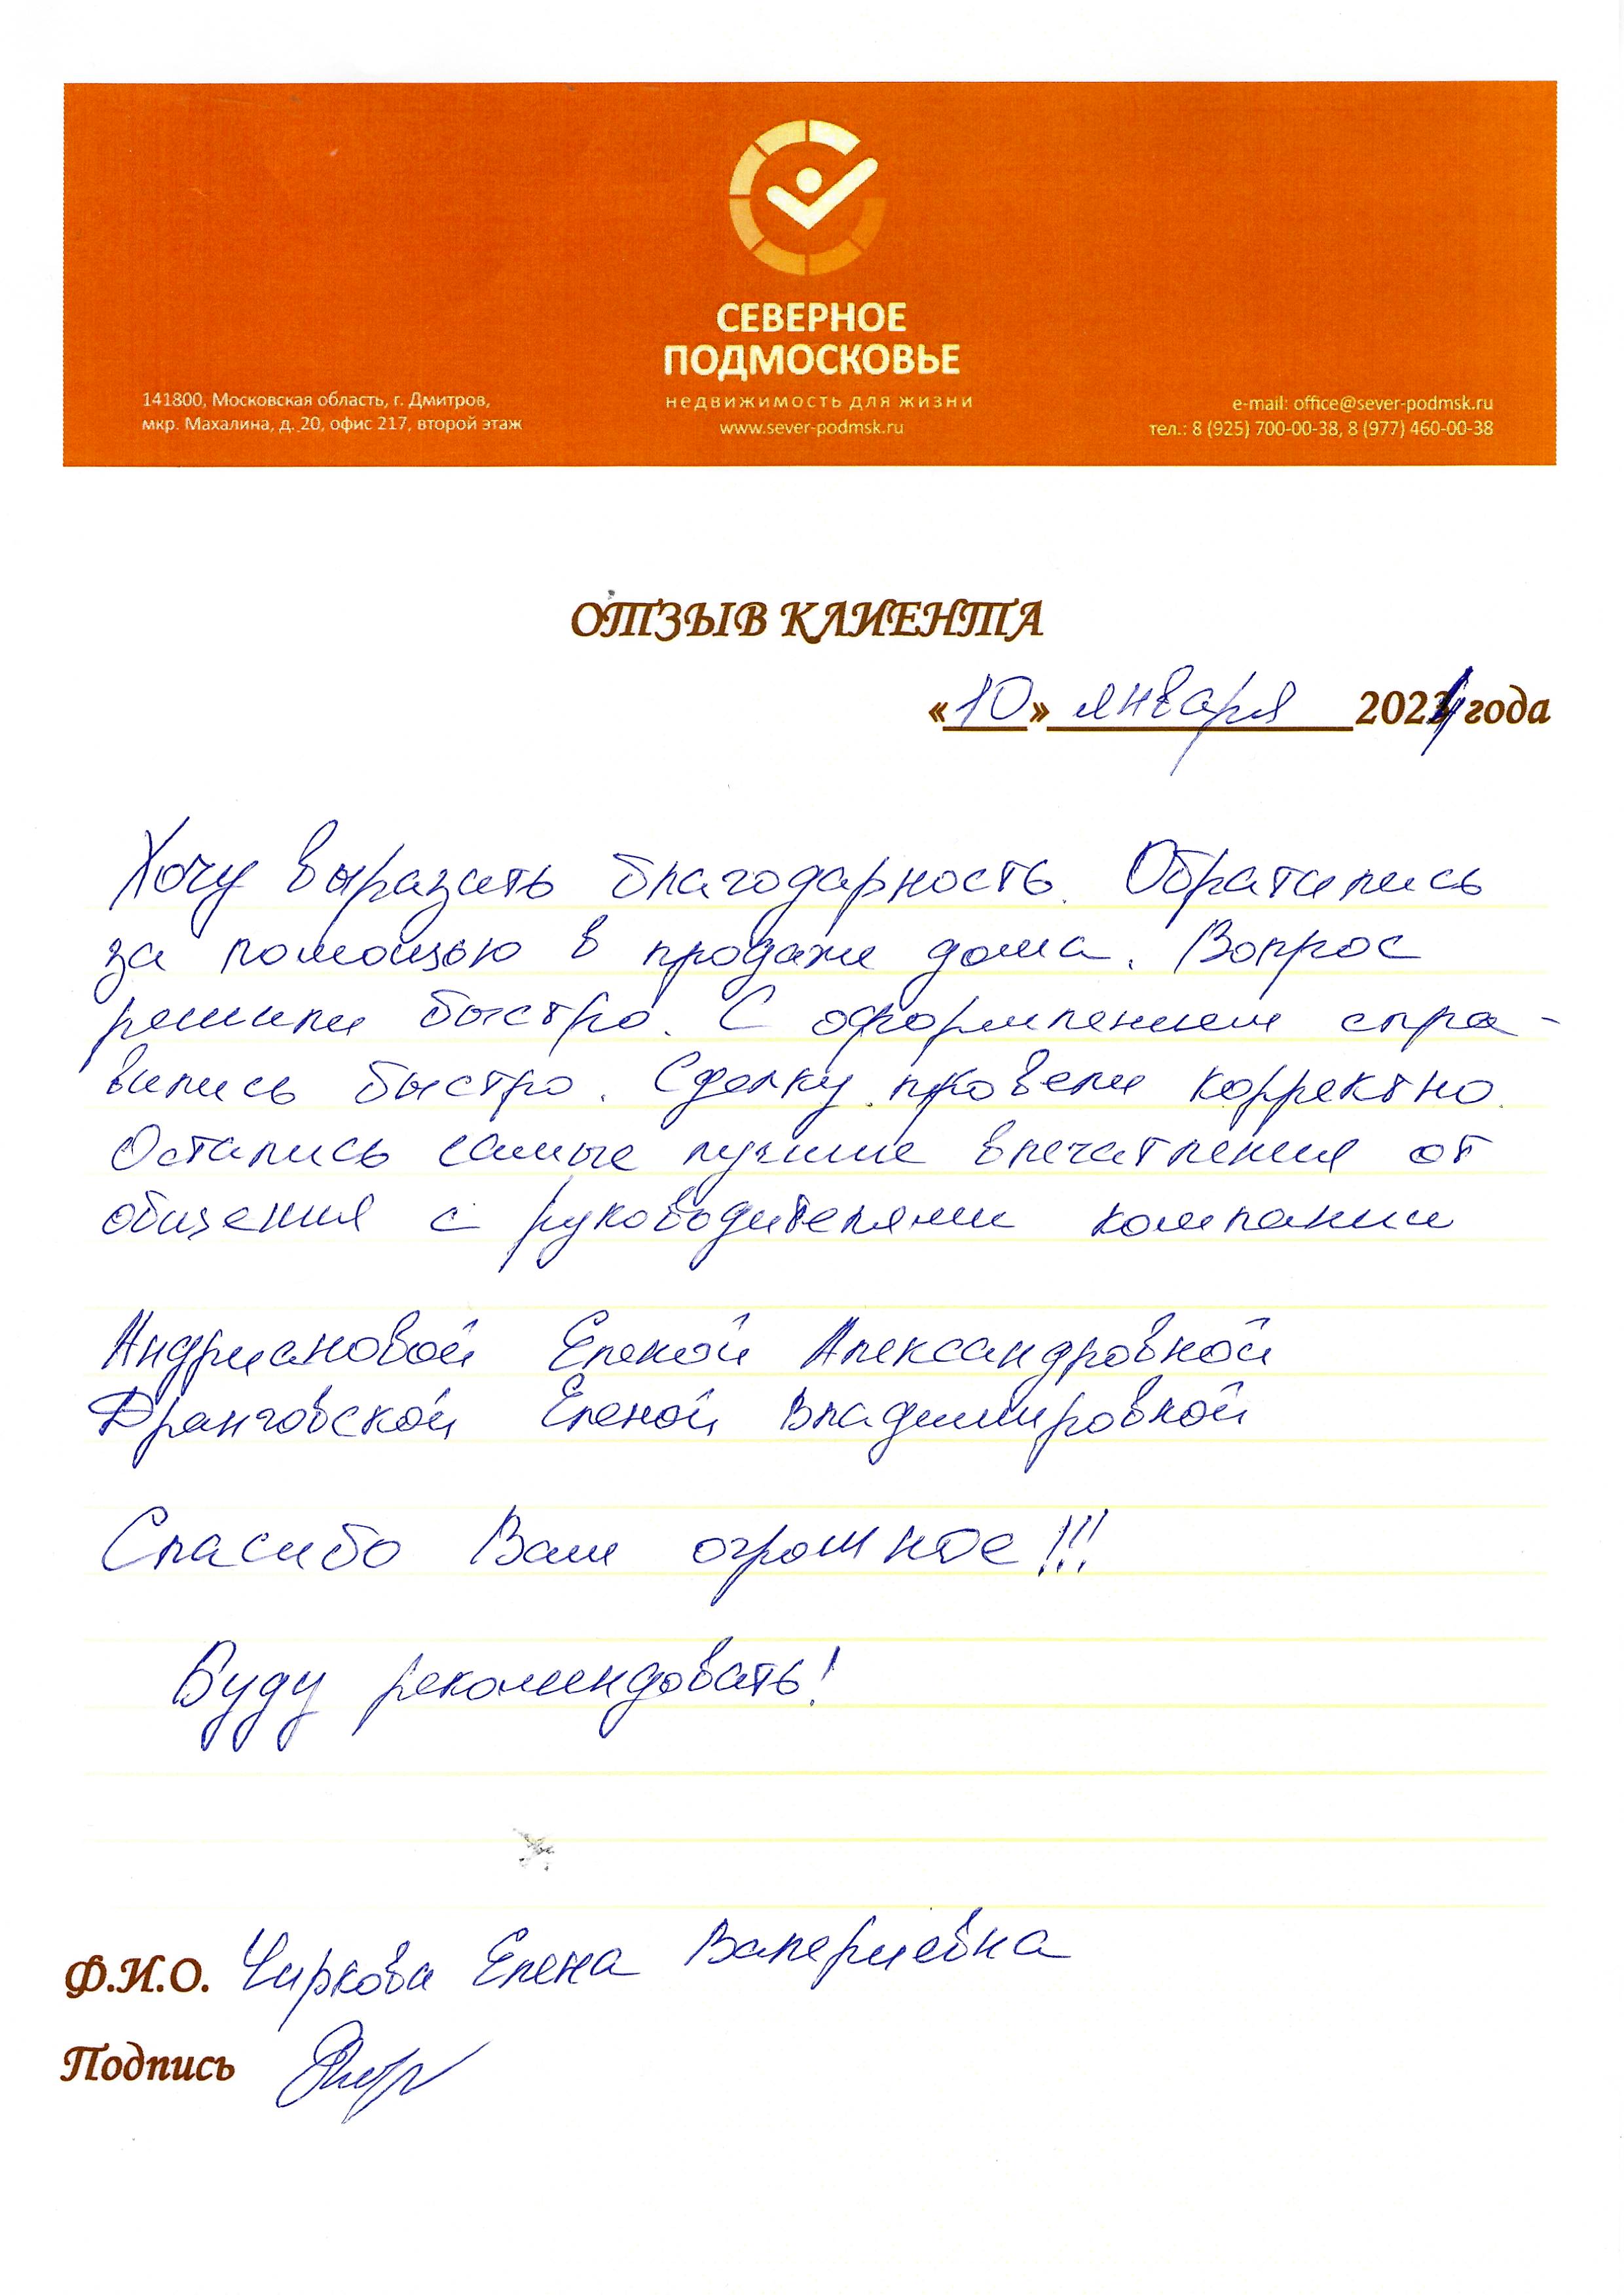 СЕВЕРНОЕ
ПОДМОСКОВЬЕ
недвижимость для жизни
www.sever-podmsk.ru
141800, Московская область, г. Дмитров,
мкр. Махалина, д. 20, офис 217, второй этаж
e-mail: office@sever-podmsk.ru
тел.: 8 (925) 700-00-38, 8 (977) 460-00-38
ОТЗЫВ КЛИЕНТА
«10» января 2024 года
Хочу выразить благодарность. Обратились
за помощью в продаже дома. Вопрос
решили быстро. С оформлением спра-
вились быстро. Сделку провели корректно.
Остались самые лучшие впечатления от
общения с руководителями компании
Андриановой Еленой Александровной
Еленой Владимировной
Спасибо Вам огромное!!!
Буду рекомендовать!
Ф.И.О. Чиркова Елена Валериевна
Подпись